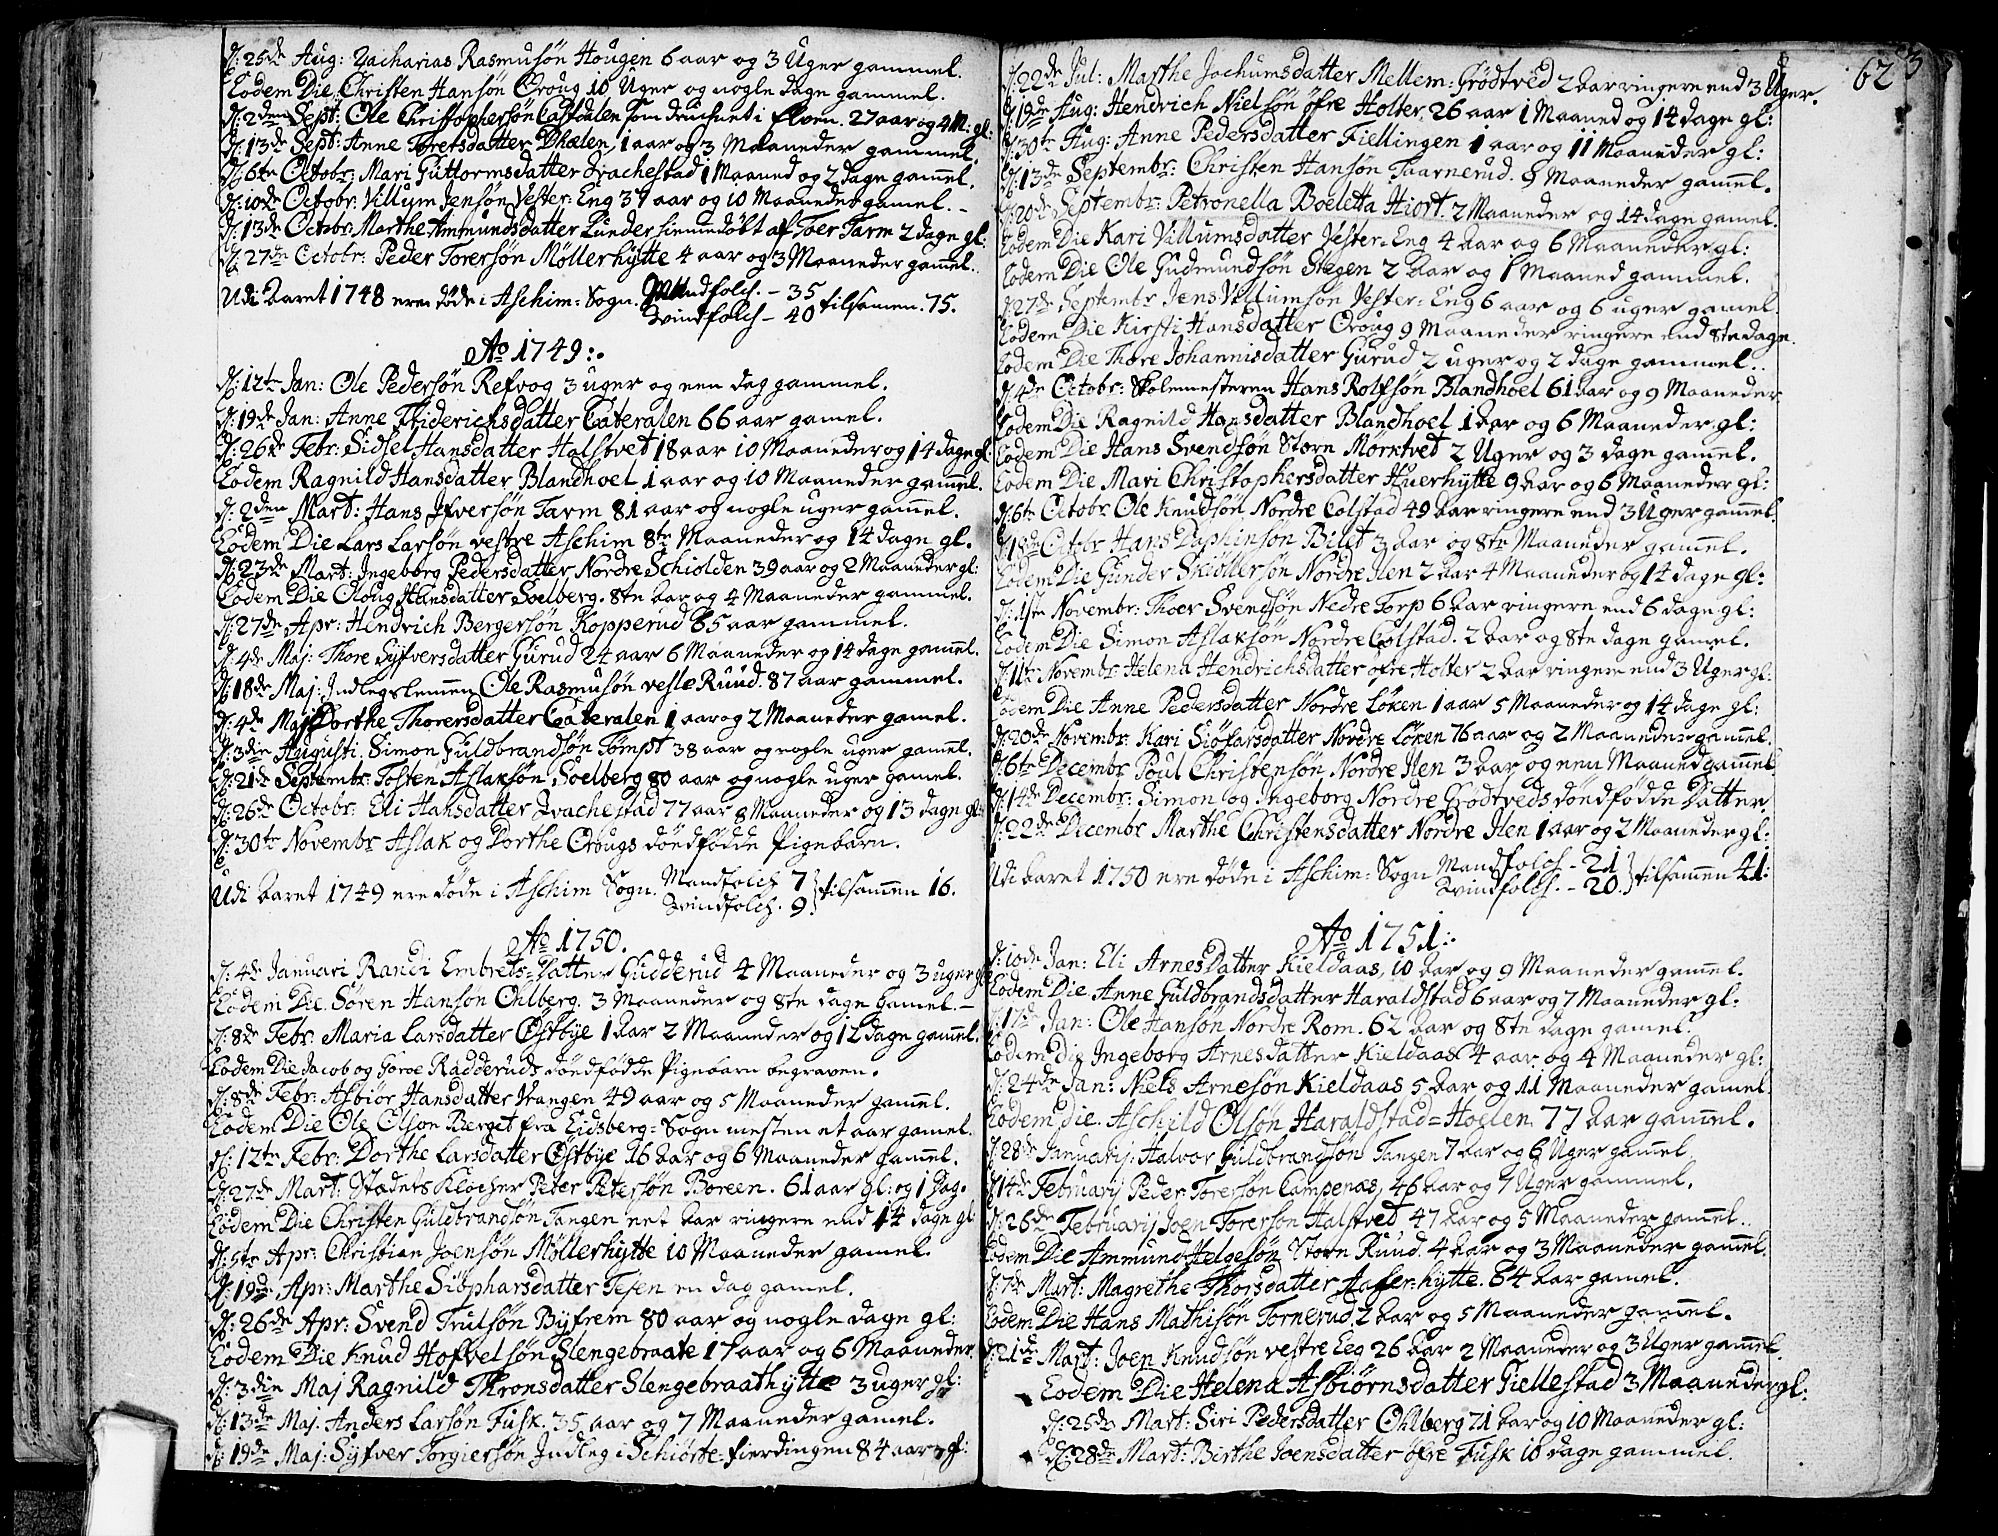 d: 25de Aug: Zacharias Rasmusøn Hougen 6 aar og 3 Uger gammel.
Eodem Die. Christen Hansøn Oroug 10 Uger og nogle dage gammel.
d: 2den Sept: Ole Christophersøn Castdalen som druchnet i Elven. 27 aar og 4 M: gl:
d: 13de Sept: Anne Toretsdatter Dhælen, 1 aar og 3 Maaneder gammel.
d: 6te Octobr: Mari Guttormsdatter Drachestad 1 Maaned og 2 dage gam̄el.
d: 10de Octobr: Villum Jensøn Vester: Eng 37 aar og 10 Maaneder gamel.
d: 13de Octobr: Marthe Ammundsdatter Lunder hiemmedøbt af Toer Tarm 2 dage gl:
d: 27de Octobr: Peder Torersøn Møllerhytte 4 aar og 3 Maaneder gam̄el.
Udi Aaret 1748 ere døde i Aschim: Sogn. Mandfolch. - 35
Qvindfolch - 40 tilsamen. 75.
Ao 1749:.
d: 12te Jan: Ole Pedersøn Refvog 3 uger og een dag gammel.
d: 19de Jan: Anne Fhiderichsdatter Cateralen 66 aar gamel.
d: 26de Febr: Sidsel Hansdatter Halstvet 18 aar 10 Maaneder og 14 dage gl:
Eodem Ragnild Hansdatter Blandhoel 1 aar og 10 Maaneder gamel.
d: 2den Mart: Hans Ifversøn Tarm 81 aar og nogle uger gam̄el.
Eodem Die Lars Larsøn vestre Aschim 8te Maaneder og 14 dage gl.
d: 23de Mart: Ingeborg Pedersdatter Nordre Schiolden 39 aar og 2 Maaneder gl:
Eodem Die Oloug Hansdatter Soelberg. 8te Aar og 4 Maaneder gammel.
d: 27de Apr: Hendrich Bergersøn Kopperud 85 aar gammel.
d: 4de Maj: Thore Syfversdatter Gurud 24 aar 6 Maaneder og 14 dage gam̄el.
d: 18de Maj: Indlegslemmen Ole Rasmusøn vesle Ruud. 87 aar gammel.
d: 4de Maj Dorthe Thorersdatter Cateralen 1 aar og 2 Maaneder gamel.
d: 3die Augusti. Simon Guldbrandsøn Tømpt 38 aar og nogle uger gam̄el.
d: 21de Septembr: Tosten Aslaksøn, Soelberg 80 aar og nogle uger gamel.
d: 26de Octobr: Eli Hansdatter Drachestad 77 aar 8 Maaneder og 13 dage gl:
d: 30te Novembr Aslak og Dorthe Orougs dødfødde Pigebarn.
Udi Aaret 1749 ere døde i Aschim Sogn. Mandfolch 7
Qvindfolch. 9 } tilsam̄en 16.
Ao 1750.
d: 4de Januari Randi Embrets=Datter Gudderud 4 Maaneder og 3 uger gl
Eodem Die. Søren Hansøn Ohlberg. 3 Maaneder og 8te dage gamel.
d: 8de Febr: Maria Larsdatter Østbye 1 Aar 2 Maaneder og 12 dage gam̄el.
Eodem Die Jacob og Goroe Radderuds dødfødde Pigebarn begraven.
d: 8de Febr: Asbiør Hansdatter Vangen 49 aar og 5 Maaneder gam̄el.
Eodem Die Ole Olson Berget fra Eidsberg=Sogn mesten et aar gamel.
d: 12te Febr: Dorthe Larsdatter Østbye 16 Aar og 6 Maaneder gam̄el.
d: 27de Mart: Stædets Klocher Peter Petersøn Boreen. 61 aar gl: og 1 Dag.
Eodem Die Christen Guldbrandsøn Tangen eet Aar ringere end 14 dage gl
d: 5te Apr: Christian Joensøn Møllerhytte 10 Maaneder gamel.
d: 19de Apr: Marthe Siøpharsdatter Tesen en dag gamel.
d: 26de Apr: Svend Trulsøn Byfrem 80 aar og nogle dage gl:
Eodem Die Knud Hofvelsøn Slengebraate 17 aar og 6 Maaneder.
d: 3die Maj Ragnild Thronsdatter Slengebraathytte 3 uger gl:
d: 13de Maj. Anders Larsøn Fusk. 35 aar og 7 Maaneder gamel.
d: 19de Maj: Syfver Torgiersøn Indleg i Schiørte: fierdingen 84 aar gl:
62
d: 22de Jul: Marthe Jochumsdatter Mellem: Grødtved 2 Aar ringere end 3 Uger.
d: 19de Aug: Hendrich Nielsøn øfre Holter. 26 aar 1 Maaned og 14 dage gl:
d: 30te Aug: Anne Pedersdatter Fiellingen 1 aar og 11 Maaneder gl:
d: 13de Septembr: Christen Hansøn Taarnerud. 8 Maaneder gam̄el.
d: 20de Septembr: Petronella Boeletta Hiort. 2 Maaneder og 14 dage gamel.
Eodem Die Kari Villumsdatter Vester=Eng 4 Aar og 6 Maaneder gl:
Eodem Die Ole Gudmundsøn Stegen 2 Aar og 1 Maaned gammel.
d: 27de Septembr Jens Villumsøn Vester=Eng 6 aar og 6 uger gam̄el.
Eodem Die Kirsti Hansdatter Oroug 9 Maaneder ringere end 8te dage.
Eodem Die Thore Johannisdatter Gurud, 2 uger og 2 dage gammel.
d: 4de Octobr: Skolemesteren Hans Rolfsøn Blandhoel 61 Aar og 9 Maaneder
Eodem Die Ragnild Hansdatter Blandhoel 1 Aar og 6 Maaneder gl:
Eodem Die Hans Svendsøn Storn Mørktvet 2 Uger og 3 dage gam̄el.
Eodem Die Mari Christophersdatter Huerhytte 9 Aar og 6 Maaneder gl:
d: 6te Octobr: Ole Knudsøn Nordre Colstad 49 Aar ringere end 3 Uger gam̄el.
d: 18de Octobr Hans Daphinsøn Bilet 3 Aar og 8te Maaneder gam̄el.
Eodem Die Gunder Skiøllersøn Nordre Ilen 2 Aar 4 Maaneder og 14 dage gl:
d: 1ste Novembr: Thoer Svendsøn Nedre Torp 6 Aar ringere end 6 dage gl:
Eodem Die Simon Aslaksøn Nordre Colstad. 2 Aar og 8te dage gam̄el.
d: 11te Novembr Helena Hendrichsdatter øfre Holter 2 Aar ringere end 3 Uger gl:
Eodem Die Anne Pedersdatter Nordre Løken 1 aar 5 Maaneder og 14 dage gl:
d: 20de Novembr: Kari Siøfarsdatter Nordre Løken 76 aar og 2 Maaneder gam̄el.
d: 6te Decembr Poul Christensøn Nordre Ilen 3 Aar og een Maaned gam̄el
d: 14de Decembr: Simon og Ingeborg Nordre Grødtveds dødfødde Datter.
d: 22de Decembr Marthe Christensdatter Nordre Ilen 1 aar og 2 Maaneder gl:
Udi Aaret 1750 ere døde i Aschim: Sogn Mandfolch - 21
Qvindfolch. - 20. } tilsam̄en 41:
Ao 1751:.
d: 10de Jan: Eli Arnesdatter Kieldaas, 10 Aar og 9 Maaneder gam̄el.
Eodem Die. Anne Guldbrandsdatter Haraldstad 6 aar og 7 Maaneder gl:
d: 17de Jan: Ole Hansøn Nordre Rom. 62 Aar og 8te dage gamel.
Eodem Die Ingeborg Arnesdatter Kieldaas 4 aar og 4 Maaneder gl:
d: 24de Jan: Niels Arnesøn Kieldaas 5 Aar og 11 Maaneder gamel.
Eodem die. Aschild Olsøn Haraldstad=Hoelen 77 Aar gam̄el.
d: 28de Januarij: Halvor Guldbrandsøn Tangen 7 Aar og 6 Uger gam̄el.
d: 14de Februarij Peder Torersøn Campenæs, 46 Aar og 7 Uger gammel.
d: 26de Februarij Joen Torersøn Halstved 47 Aar og 5 Maaneder gam̄el.
Eodem Die Ammund Helgesøn Storn Ruud. 4 Aar og 3 Maaneder gam̄el.
d: 7de Mart: Magrethe Thorsdatter Aaser=hytte. 64 Aar gamel.
Eodem Die Hans Mathisøn Tornerud 2 Aar og 5 Maaneder gam̄el.
d: 21de Mart: Joen Knudsøn vestre Eeg 26 Aar 2 Maaneder og 3 Uger gam̄el.
Eodem Die Helena Asbiørnsdatter Fiellestad 3 Maaneder gl:
d: 25de Mart: Siri Pedersdatter Ohlberg 71 Aar og 10 Maaneder gl:
d: 28de Mart: Birthe Joensdatter øfre Fusk 10 dage gammel.